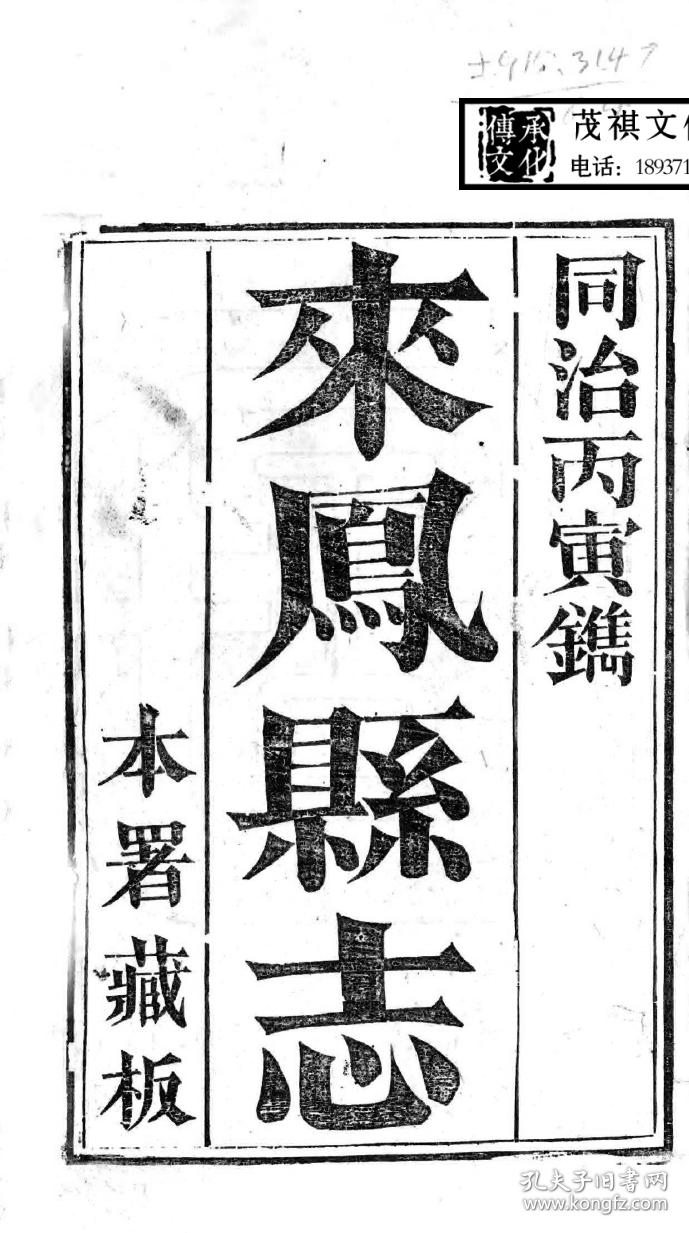 傳承
文化
茂祺文
电话：189371
同治丙寅鐫
來鳳縣志
本署藏板
孔夫子旧书网
www.kongfz.com